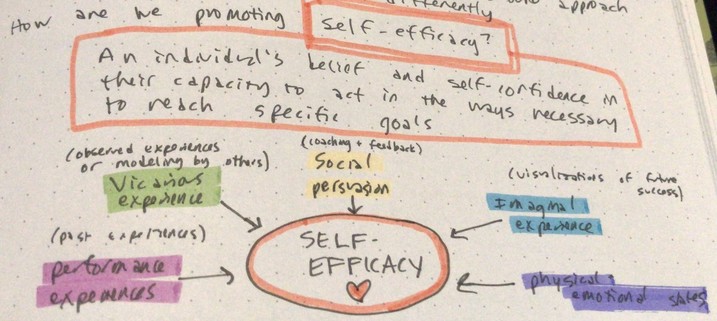 differently
approach
How are we promoting self-efficacy?
An individual's belief and self-confidence in
their capacity to act in the ways necessary
to reach specific goals
(observed experiences
or modeling by others)
Vicarious
experience
(coaching + feedback)
Social
persuasion
(visualizations of future
success)
Imaginal
experience
(past experiences)
performance
experiences
SELF-
EFFICACY
physical
emotional states